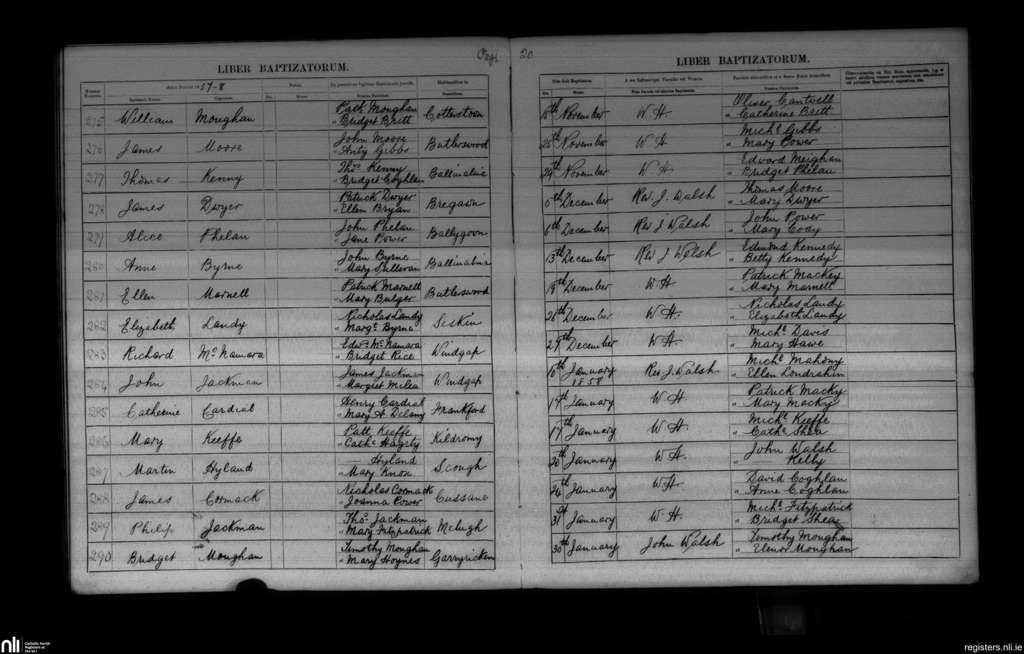 Pagi 20
LIBER BAPTIZATORUM.
1857-8
275 William Moughan Patk Moughan Cotterstown
" Bridget Britt
276 James Moore John Moore Butlerswood
" Anty Gibbs
277 Thomas Kenny Thos Kenny Ballinabia
" Bridget Coghlan
278 James Dwyer Patrick Dwyer Bregaun
" Ellen Bryan
279 Alice Phelan John Phelan Ballygoon
" Jane Power
280 Anne Byrne John Byrne Ballinabia
" Mary Sullivan
281 Ellen Marnell Patrick Marnell Butlerswood
" Mary Bulger
282 Elizabeth Landy Nicholas Landy Siskin
" Margt Byrne
283 Richard McNamara Edwd McNamara Windgap
" Bridget Rice
284 John Jackman James Jackman Windgap
" Margret Melea
285 Catherine Cardial Henry Cardial Frankford
" Mary A Delany
286 Mary Keeffe Patt Keeffe Kildromy
" Cathe Hagrty
287 Martin Hyland — Hyland Scough
" Mary Knox
288 James Cormack Nicholas Cormack Cussane
" Joanna Power
289 Philip Jackman Thos Jackman Melugh
" Mary Fitzpatrick
290 Bridget Moughan Timothy Moughan Garryricken
" Mary Hoynes
LIBER BAPTIZATORUM.
15th November W. H. Oliver Cantwell
" Catherine Britt
25th November W H Michl Gibbs
" Mary Power
29th November W H Edward Meighan
" Bridget Phelan
6th December Rev J. Walsh Thomas Moore
" Mary Dwyer
6th December Rev J Walsh John Power
" Mary Cody
13th December Rev J Walsh Edmond Kennedy
" Betty Kennedy
19th December W H Patrick Mackey
" Mary Marnell
26th December W H. Nicholas Landy
" Elizabeth Landy
27th December W H. Michl Davis
" Mary Hawe
10th January Rev J. Walsh Michl Mahony
1858 " Ellen Londrahin
17th January W H Patrick Macky
" Mary Macky
17th January W H. Michl Keeffe
" Cathe Shea
20th January W H John Walsh
" Kelly
26th January W H. David Coghlan
" Anne Coghlan
31st January W H. Michl Fitzpatrick
" Bridget Shea
30th January John Walsh Timothy Moughan
" Elenor Moughan
nli Catholic Parish Registers at the NLI
registers.nli.ie